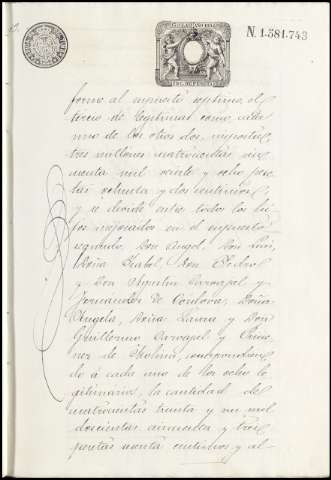 N. 1.581.743
forme al supuesto septimo, el
tercio de legitimas como cada
uno de los otros dos, importa
tres millones cuatrocientas
mil veinte y ocho pese
tas ochenta y dos centimos,
y se divide entre todos los hi
jos mejorados en el supuesto
segundo, Don Angel, Don Luis,
Doña Isabel, Don Pedro
y Don Agustin Carvajal y
Fernandez de Cordova; Doña
Angela, Doña Laura y Don
Guillermo Carvajal y Xime
nez de Molina, correspondien
do á cada uno de los ocho le
gitimarios, la cantidad de
cuatrocientas treinta y un mil
doscientas cincuenta y tres
pesetas sesenta centimos y al